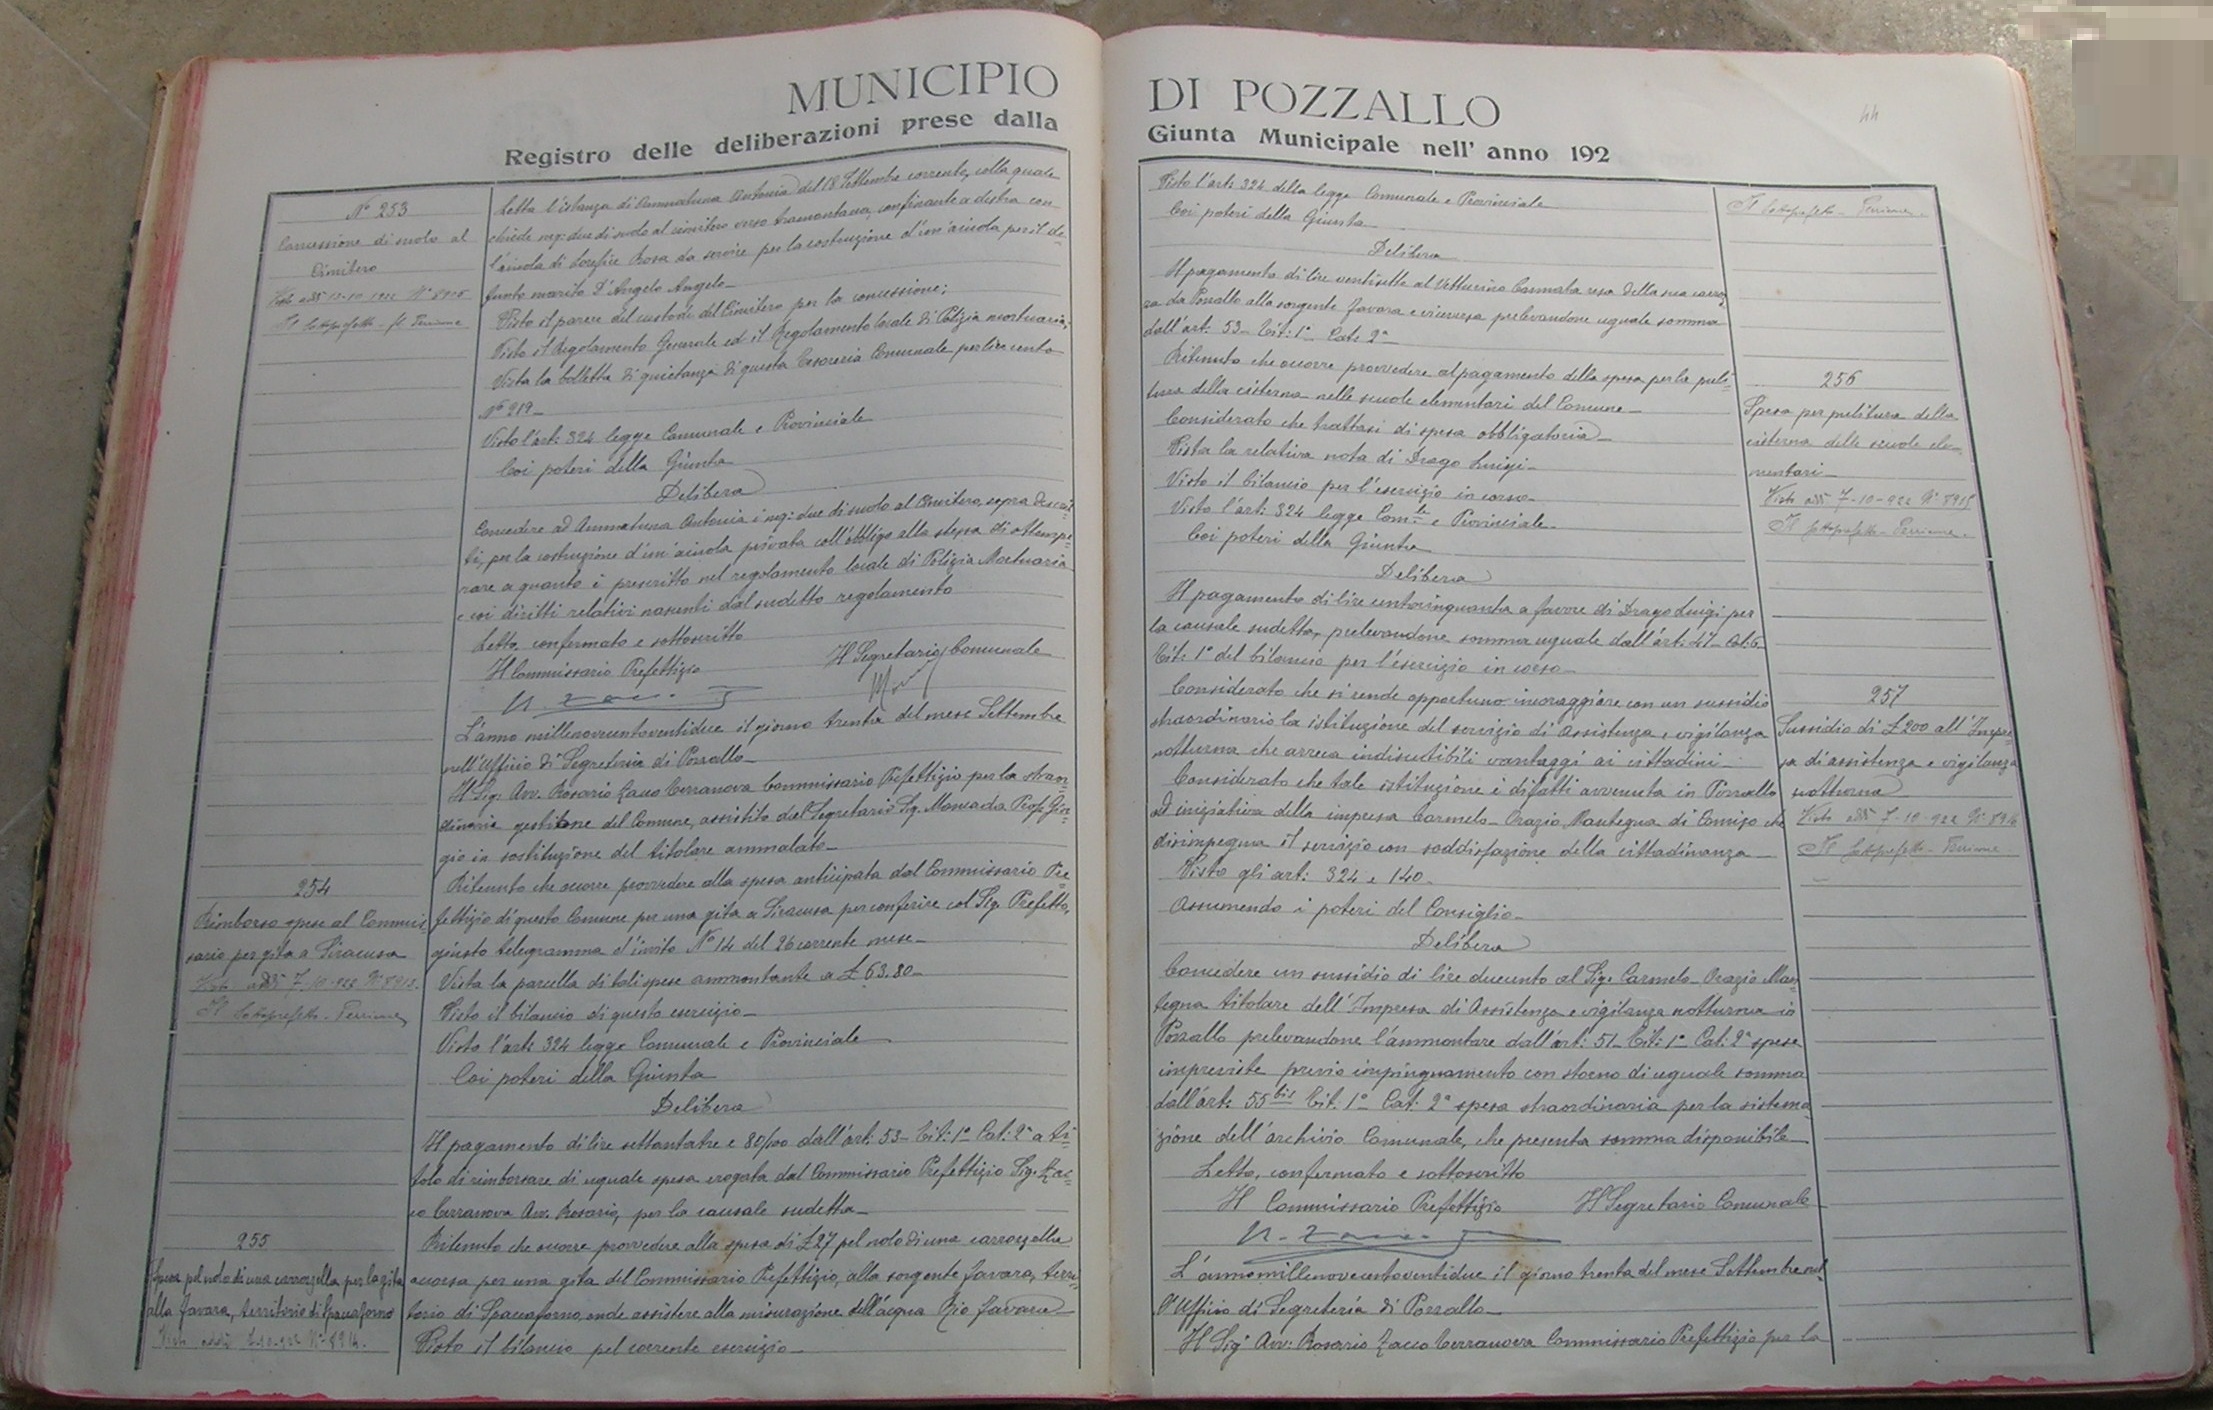 MUNICIPIO
Registro delle deliberazioni prese dalla
N° 253
Concessione di suolo al
Cimitero
Visto addì 12-10-1922 N° 8915
Il Sottoprefetto
Letta l'istanza di Ammatuna Antonia del 18 Settembre corrente, colla quale
chiede mq: due di suolo al cimitero verso tramontana, confinante a destra con
l'aiuola di Lorefice Rosa da servire per la costruzione d'un'aiuola per il de-
funto marito D'Angelo Angelo-
Visto il parere del custode del Cimitero per la concessione;
Visto il Regolamento Generale ed il Regolamento locale di Polizia mortuaria;
Vista la bolletta di quietanza di questa Tesoreria Comunale per lire cento
N° 219-
Visto l'art: 324 legge Comunale e Provinciale
Coi poteri della Giunta
Delibera
Concedere ad Ammatuna Antonia i mq: due di suolo al Cimitero, sopra descrit=
ti, per la costruzione d'un'aiuola privata coll'obbligo alla stessa di ottempe=
rare a quanto è prescritto nel regolamento locale di Polizia Mortuaria
e coi diritti relativi nascenti dal sudetto regolamento
Letto, confermato e sottoscritto
Il Commissario Prefettizio Il Segretario Comunale
L'anno millenovecentoventidue il giorno trenta del mese Settembre
nell'Ufficio di Segreteria di Pozzallo-
Il Sig. Avv. Rosario Zacco Terranova Commissario Prefettizio per la straor=
dinaria gestione del Comune, assistito dal Segretario Sig. Moncada Prof. Gior=
gio in sostituzione del titolare ammalato-
254
Rimborso spese al Commis=
sario per gita a Siracusa
Visto addì 7-10-922 N° 8913.
Il Sottoprefetto
Ritenuto che occorre provvedere alla spesa anticipata dal Commissario Pre=
fettizio di questo Comune per una gita a Siracusa per conferire col Sig. Prefetto,
giusto telegramma d'invito N° 14 del 26 corrente mese-
Vista la parcella di tali spese ammontante a £ 63.80-
Visto il bilancio di questo esercizio-
Visto l'art: 324 legge Comunale e Provinciale
Coi poteri della Giunta
Delibera
Il pagamento di lire settantatre e 80/100 dall'art: 53- Tit: 1° Cat: 2ª a ti=
tolo di rimborsare di uguale spesa erogata dal Commissario Prefettizio Sig. Zac=
co Terranova Avv. Rosario, per la causale sudetta-
255
Spesa pel nolo di una carrozzella per la gita
alla Favara, territorio di Spaccaforno
Visto addì 7-10-922 N° 8914.
Ritenuto che occorre provvedere alla spesa di £27 pel nolo di una carrozzella
occorsa per una gita del Commissario Prefettizio, alla sorgente Favara, terri=
torio di Spaccaforno, onde assistere alla misurazione dell'acqua Rio Favara
Visto il bilancio pel corrente esercizio-
DI POZZALLO
Giunta Municipale nell' anno 192
44
Visto l'art: 324 della legge Comunale e Provinciale
Coi poteri della Giunta
Delibera
Il pagamento di lire ventisette al Vetturino Cannata resa della sua carroz
za da Pozzallo alla sorgente Favara e viceversa prelevandone uguale somma
dall'art: 53- Tit: 1° Cat: 2ª
Il Sottoprefetto
Ritenuto che occorre provvedere al pagamento della spesa per la puli=
tura della cisterna nelle scuole elementari del Comune-
Considerato che trattasi di spesa obbligatoria-
Vista la relativa nota di Drago Luigi-
Visto il bilancio per l'esercizio in corso-
Visto l'art: 324 legge Com.le e Provinciale-
Coi poteri della Giunta
Delibera
Il pagamento di lire centocinquanta a favore di Drago Luigi per
la causale sudetta, prelevandone somma uguale dall'art: 47- Cat: 6
Tit: 1° del bilancio per l'esercizio in corso-
256
Spesa per pulitura della
cisterna delle scuole ele-
mentari-
Visto addì 7-10-922 N° 8915
Il Sottoprefetto
Considerato che si rende opportuno incoraggiare con un sussidio
straordinario la istituzione del servizio di assistenza e vigilanza
notturna che arreca indiscutibili vantaggi ai cittadini-
Considerato che tale istituzione è difatti avvenuta in Pozzallo
ad iniziativa della impresa Carmelo- Orazio Mantegna di Comiso che
disimpegna il servizio con soddisfazione della cittadinanza-
Visto gli art: 324 e 140.
Assumendo i poteri del Consiglio-
Delibera
257
Sussidio di £200 all'Impre=
sa di assistenza e vigilanza
notturna
Visto addì 7-10-922 N° 8916
Il Sottoprefetto
Concedere un sussidio di lire duecento al Sig. Carmelo- Orazio Man=
tegna titolare dell'Impresa di Assistenza e vigilanza notturna in
Pozzallo prelevandone l'ammontare dall'art: 51- Tit: 1° Cat: 2ª spese
impreviste previo impinguamento con storno di uguale somma
dall'art: 55 bis Tit. 1° Cat: 2ª spesa straordinaria per la sistema
zione dell'archivio Comunale, che presenta somma disponibile
Letto, confermato e sottoscritto
Il Commissario Prefettizio Il Segretario Comunale
L'anno millenovecentoventidue il giorno trenta del mese Settembre nel=
l'Ufficio di Segreteria di Pozzallo-
Il Sig. Avv: Rosario Zacco Terranova Commissario Prefettizio per la